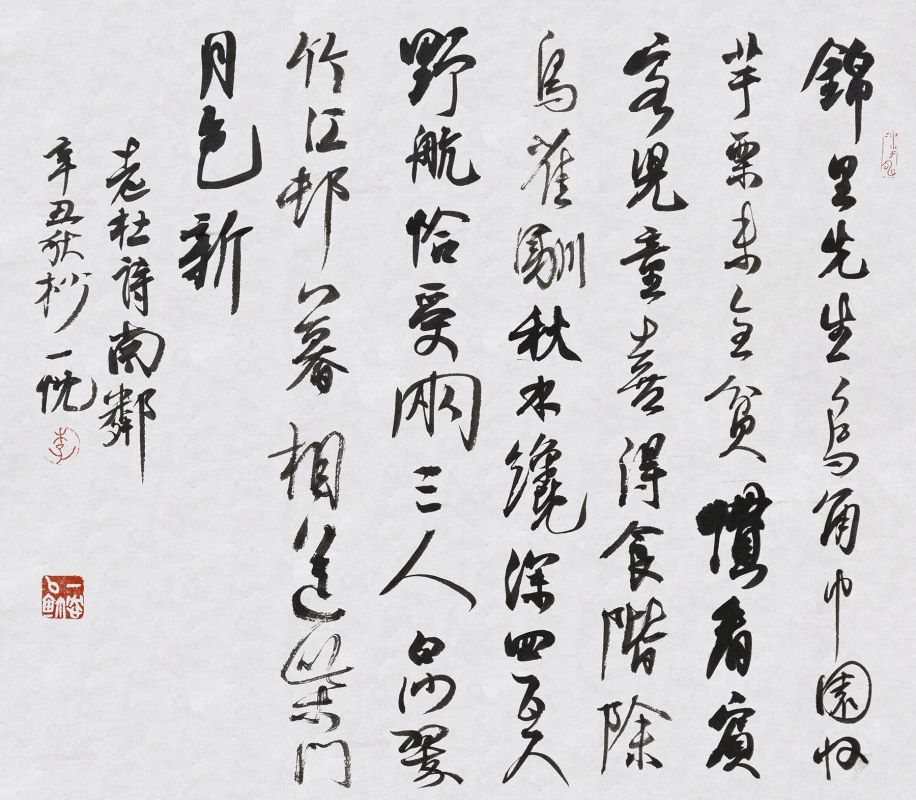 錦里先生烏角巾園收
芋栗未全貧慣看賓
客兒童喜得食階除
鳥雀馴秋水纔深四五尺
野航恰受兩三人白沙翠
竹江邨暮相送柴門
月色新
老杜詩南鄰
辛丑秋杪一忱
李